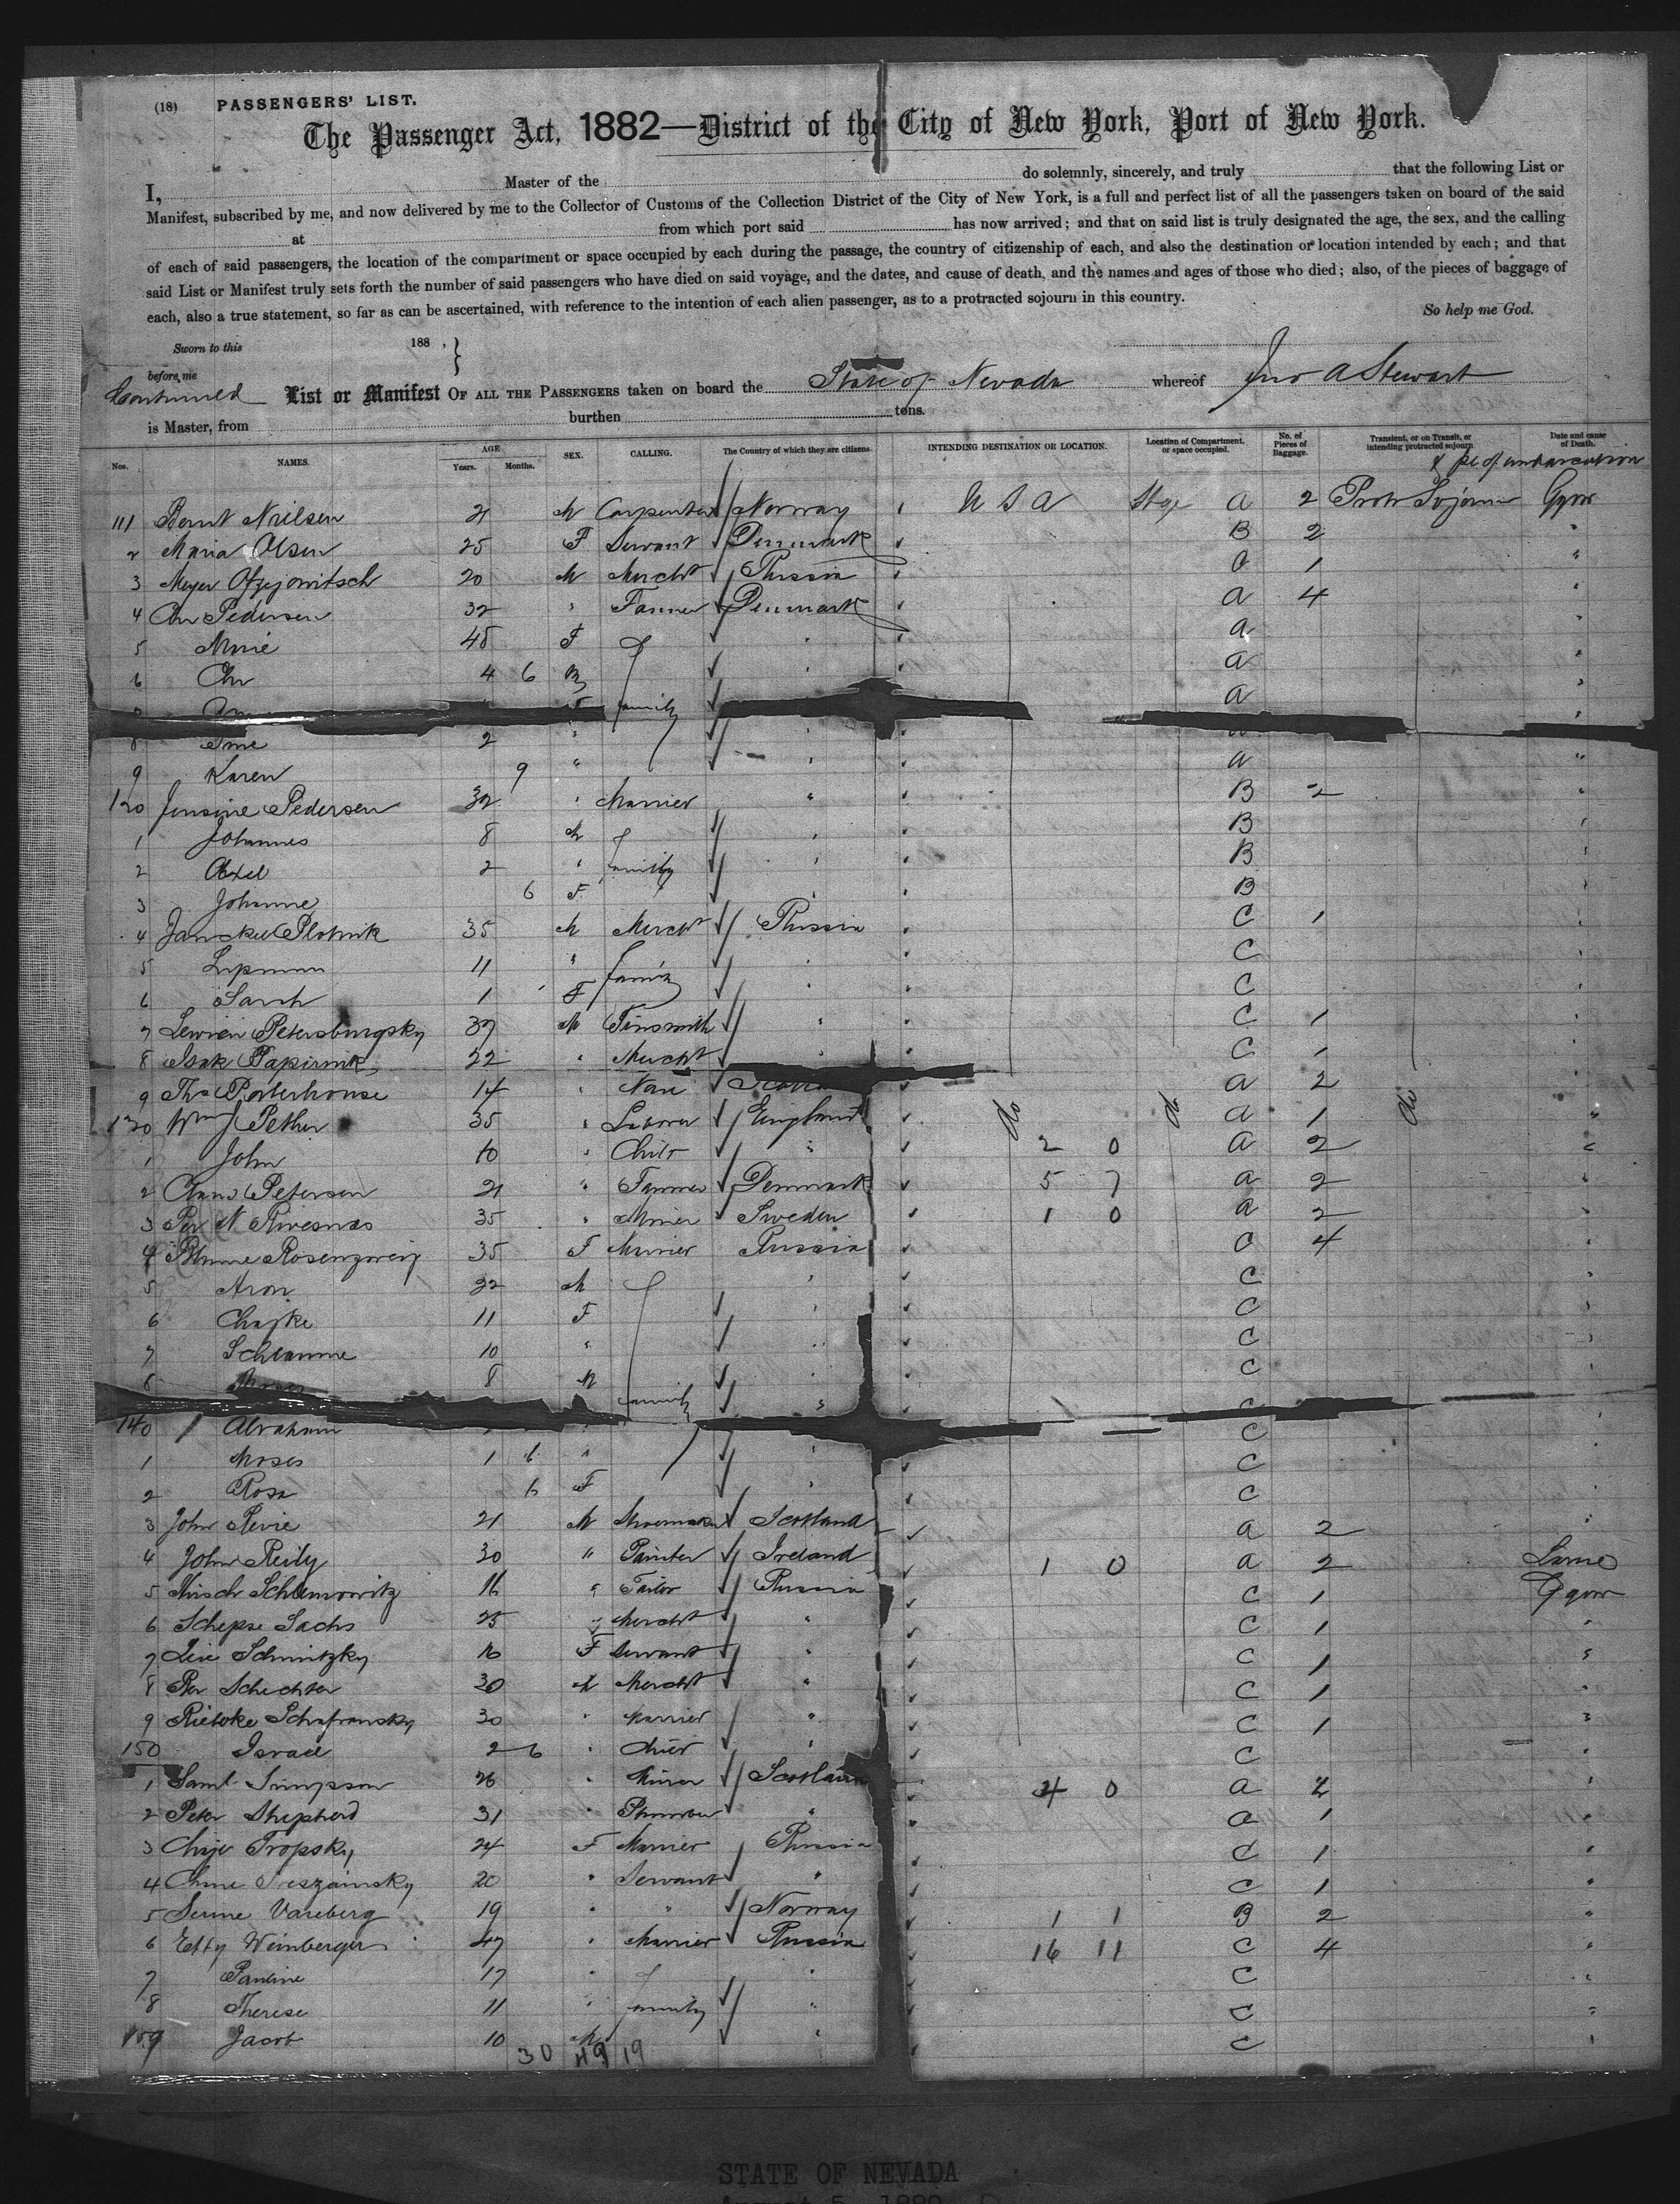 (18) PASSENGERS' LIST.
The Passenger Act, 1882—District of the City of New York, Port of New York.
I, Master of the do solemnly, sincerely, and truly that the following List or
Manifest, subscribed by me, and now delivered by me to the Collector of Customs of the Collection District of the City of New York, is a full and perfect list of all the passengers taken on board of the said
at from which port said has now arrived; and that on said list is truly designated the age, the sex, and the calling
of each of said passengers, the location of the compartment or space occupied by each during the passage, the country of citizenship of each, and also the destination or location intended by each; and that
said List or Manifest truly sets forth the number of said passengers who have died on said voyage, and the dates, and cause of death, and the names and ages of those who died; also, of the pieces of baggage of
each, also a true statement, so far as can be ascertained, with reference to the intention of each alien passenger, as to a protracted sojourn in this country.
So help me God.
Sworn to this 188 , }
before me
Continued List or Manifest OF ALL THE PASSENGERS taken on board the State of Nevada whereof Jno A Stewart
is Master, from burthen tons.
Nos. NAMES. AGE Years. Months. SEX. CALLING. The Country of which they are citizens. INTENDING DESTINATION OR LOCATION. Location of Compartment, or space occupied. No. of Pieces of Baggage. Transient, or on Transit, or intending protracted sojourn Date and cause of Death.
& pl of embarcation
111 Bernt Nielsen 21 M Carpenter Norway U S A Stge A 2 Protr Sojourn Ggow
2 Maria Olsen 25 F Servant Denmark B 2 "
3 Meyer 20 M Mercht Russia C 1 "
4 Chr Pedersen 32 " Farmer Denmark A 4 "
5 Marie 45 F " A "
6 Chr 4 6 M " A "
family A "
8 2 " "
9 Karen 9 " " A "
120 Jensine Pedersen 32 " Married " B 2 "
1 Johannes 8 M " B "
2 Axel 2 " family " B "
3 Johanne 6 F " B "
4 Janckel Plotnik 35 M Mercht Russia C 1 "
5 Lipman 11 " family " C "
6 Sarah 1 F " C "
7 Petersburgsky 37 M Tinsmith " C 1 "
8 Isak Papirnik 22 " Mercht " C 1 "
9 Thos Porterhouse 14 " None A 2
130 Wm J Pether 35 " Laborer England do do A 1 do "
1 John 10 " Child " 2 0 A 2 "
2 Claus Petersen 21 " Farmer Denmark 5 7 A 2 "
3 Per N 35 " Miner Sweden 1 0 A 2 "
4 Rosenzweig 35 F Married Russia C 4
5 Aron 22 M " C "
6 Chajke 11 F " C "
7 Schlamme 10 " " C "
8 Moses 8 M " C "
family " C
140 Abraham " C
1 Moses 1 6 " " C
2 Rosa 6 F " C
3 John Revie 21 M Shoemaker Scotland A 2 "
4 John Reily 30 " Painter Ireland 1 0 A 2 Larne
5 Hirsch 16 " Tailor Russia C 1 Ggow
6 Schepse Sachs 25 " Mercht " C 1 "
7 16 F Servant " C 1 "
8 Ber Schechter 30 M Mercht " C 1 "
9 Schafransky 30 " Married " C 1 "
150 Israel 2 6 " Child " C "
1 Saml Simpson 26 " Miner Scotland 4 0 A 2 "
2 Peter Shepherd 31 " Plumber " A 1 "
3 Chaje Tropsky 24 F Married Russia C 1 "
4 20 " Servant " C 1 "
5 Vareberg 19 " " Norway 1 1 B 2 "
6 Etty Weinberger 47 " Married Russia 16 11 C 4 "
7 Pauline 17 " " C "
8 Therese 11 " family " C "
159 Jacob 10 M " C "
30 49 19
STATE OF NEVADA